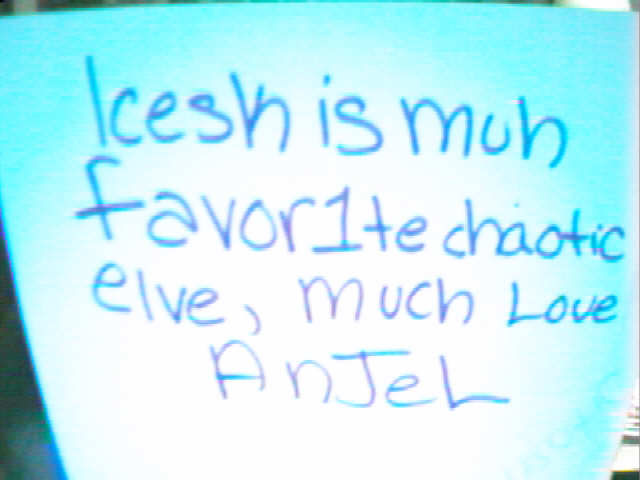 Icesh is muh
favor1te chaotic
elve, much Love
AnJeL